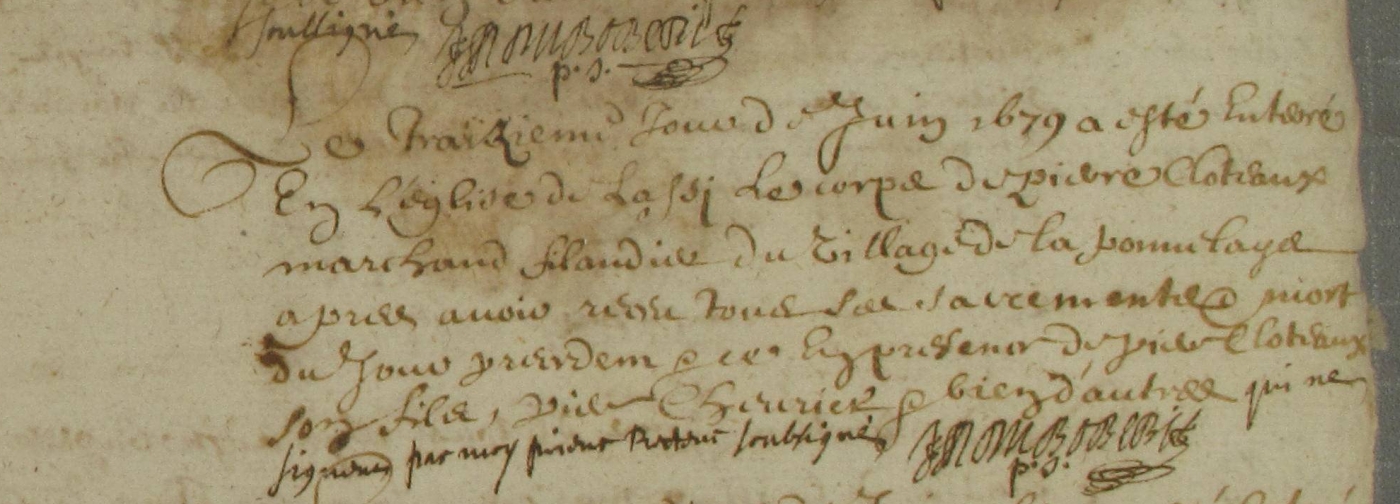 soubsigné
p. s.
Le traiziemme Jour de Juin 1679 a esté Enterré
En L'église de Lassy Le corps de pierre Cloteaux
marchand filandier du Village de la
apres avoir receu tous ses sacrements mort
du Jour precedem & ce En presence de pierre Cloteaux
son fils, pierre Chevrier & bien d'autres qui ne
signent par moy prieur Recteur soubsigné
p. s.